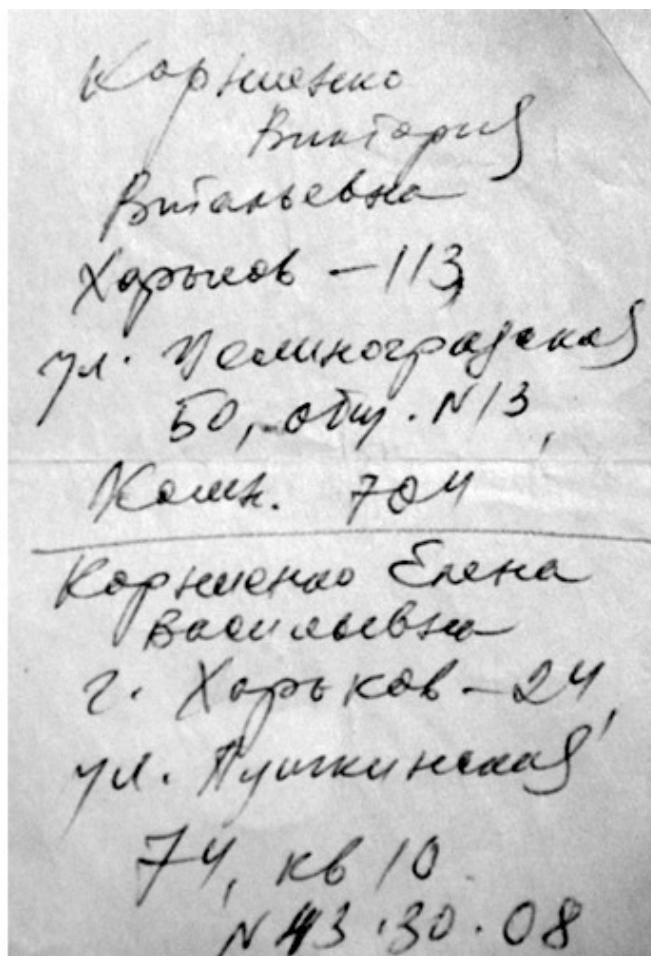 Корниенко
Виктория
Витальевна
Харьков – 113,
ул. Целиноградская
50, общ. N 13,
Комн. 704
Корниенко Елена
Васильевна
г. Харьков – 24,
ул. Пушкинская
74, кв 10
N 43·30·08